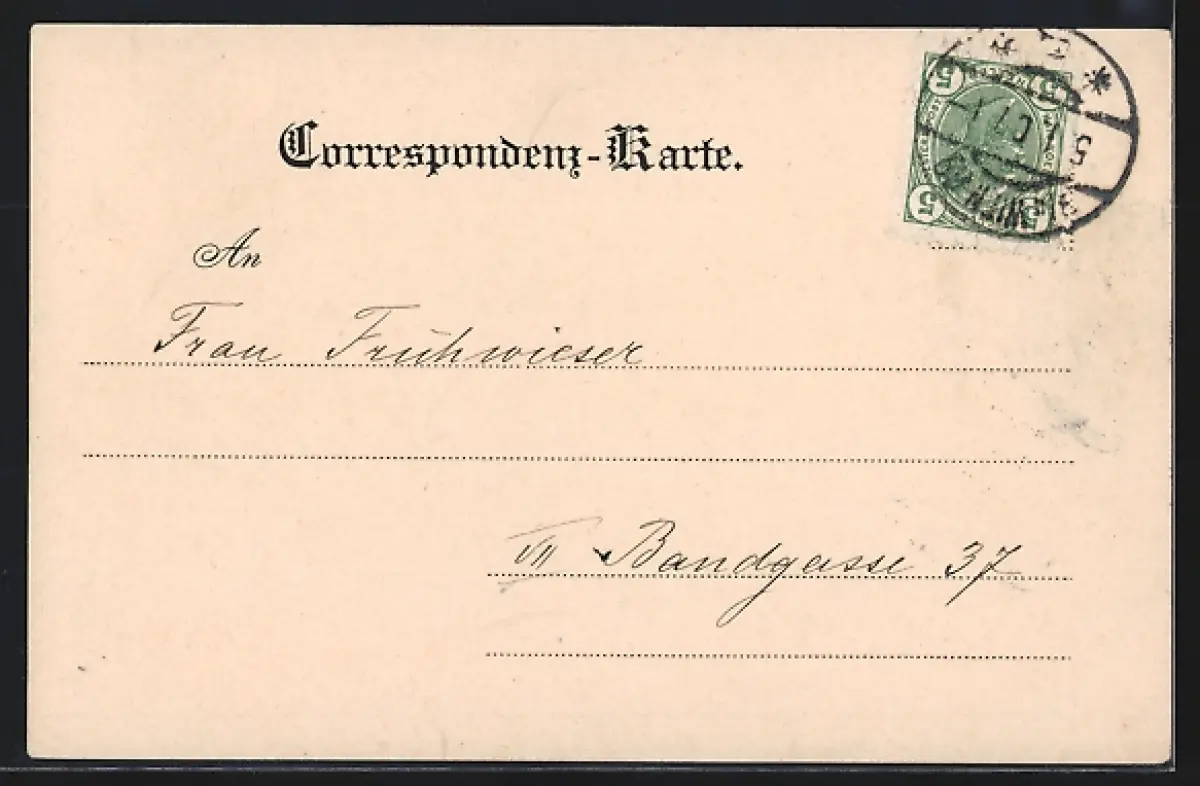 Correspondenz-Karte.
An
Frau Frühwieser
VII Bandgasse 37
5 5
5 5
WIEN